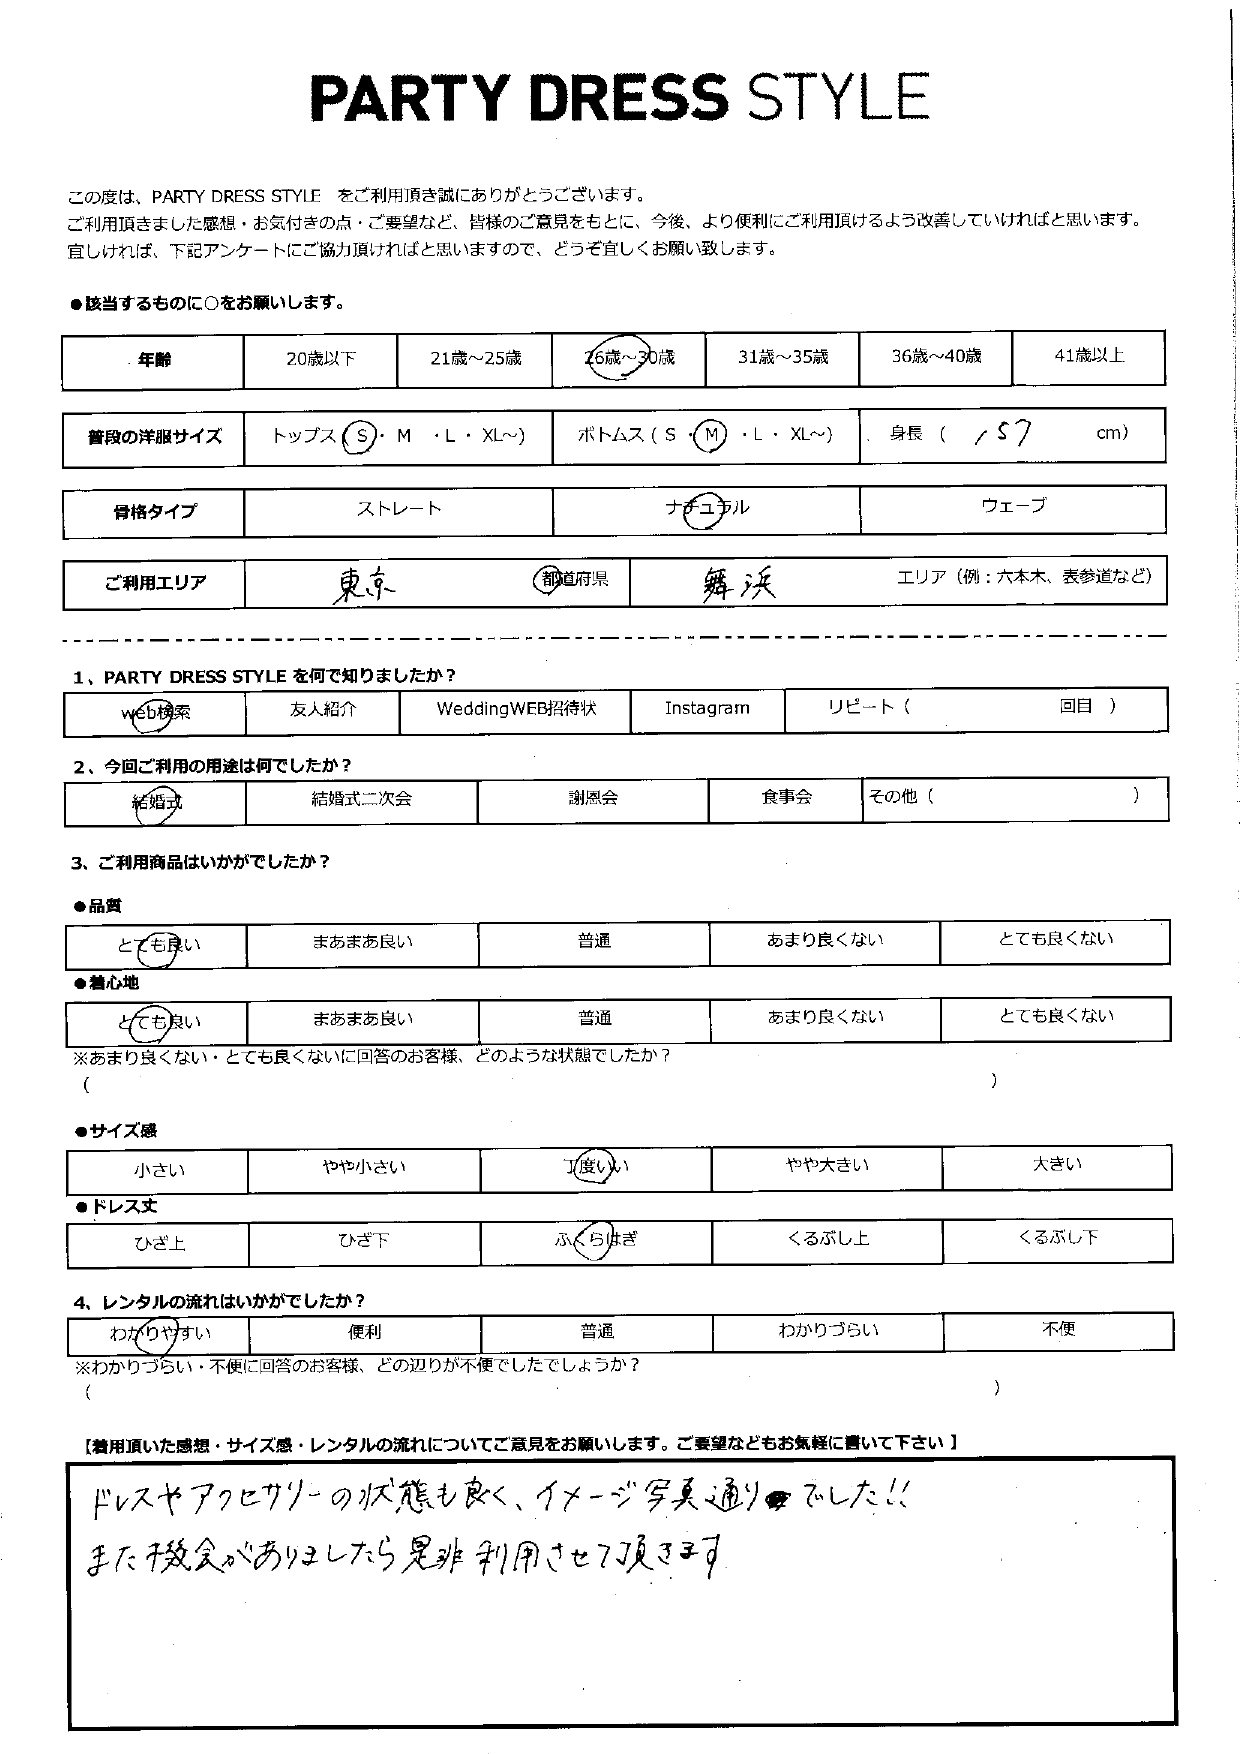 PARTY DRESS STYLE
この度は、PARTY DRESS STYLE をご利用頂き誠にありがとうございます。
ご利用頂きました感想・お気付きの点・ご要望など、皆様のご意見をもとに、今後、より便利にご利用頂けるよう改善していければと思います。
宜しければ、下記アンケートにご協力頂ければと思いますので、どうぞ宜しくお願い致します。
●該当するものに○をお願いします。
年齢 20歳以下 21歳～25歳 26歳～30歳 31歳～35歳 36歳～40歳 41歳以上
普段の洋服サイズ トップス ( S ・ M ・L ・ XL～) ボトムス ( S ・ M ・L ・ XL～) 身長 ( 157 cm)
骨格タイプ ストレート ナチュラル ウェーブ
ご利用エリア 東京 都道府県 舞浜 エリア（例：六本木、表参道など）
1、PARTY DRESS STYLE を何で知りましたか？
web検索 友人紹介 WeddingWEB招待状 Instagram リピート（ 回目 ）
2、今回ご利用の用途は何でしたか？
結婚式 結婚式二次会 謝恩会 食事会 その他（ ）
3、ご利用商品はいかがでしたか？
●品質
とても良い まあまあ良い 普通 あまり良くない とても良くない
●着心地
とても良い まあまあ良い 普通 あまり良くない とても良くない
※あまり良くない・とても良くないに回答のお客様、どのような状態でしたか？
（ ）
●サイズ感
小さい やや小さい 丁度いい やや大きい 大きい
●ドレス丈
ひざ上 ひざ下 ふくらはぎ くるぶし上 くるぶし下
4、レンタルの流れはいかがでしたか？
わかりやすい 便利 普通 わかりづらい 不便
※わかりづらい・不便に回答のお客様、どの辺りが不便でしたでしょうか？
（ ）
【着用頂いた感想・サイズ感・レンタルの流れについてご意見をお願いします。ご要望などもお気軽に書いて下さい 】
ドレスやアクセサリーの状態も良く、イメージ写真通りでした!!
また機会がありましたら是非利用させて頂きます